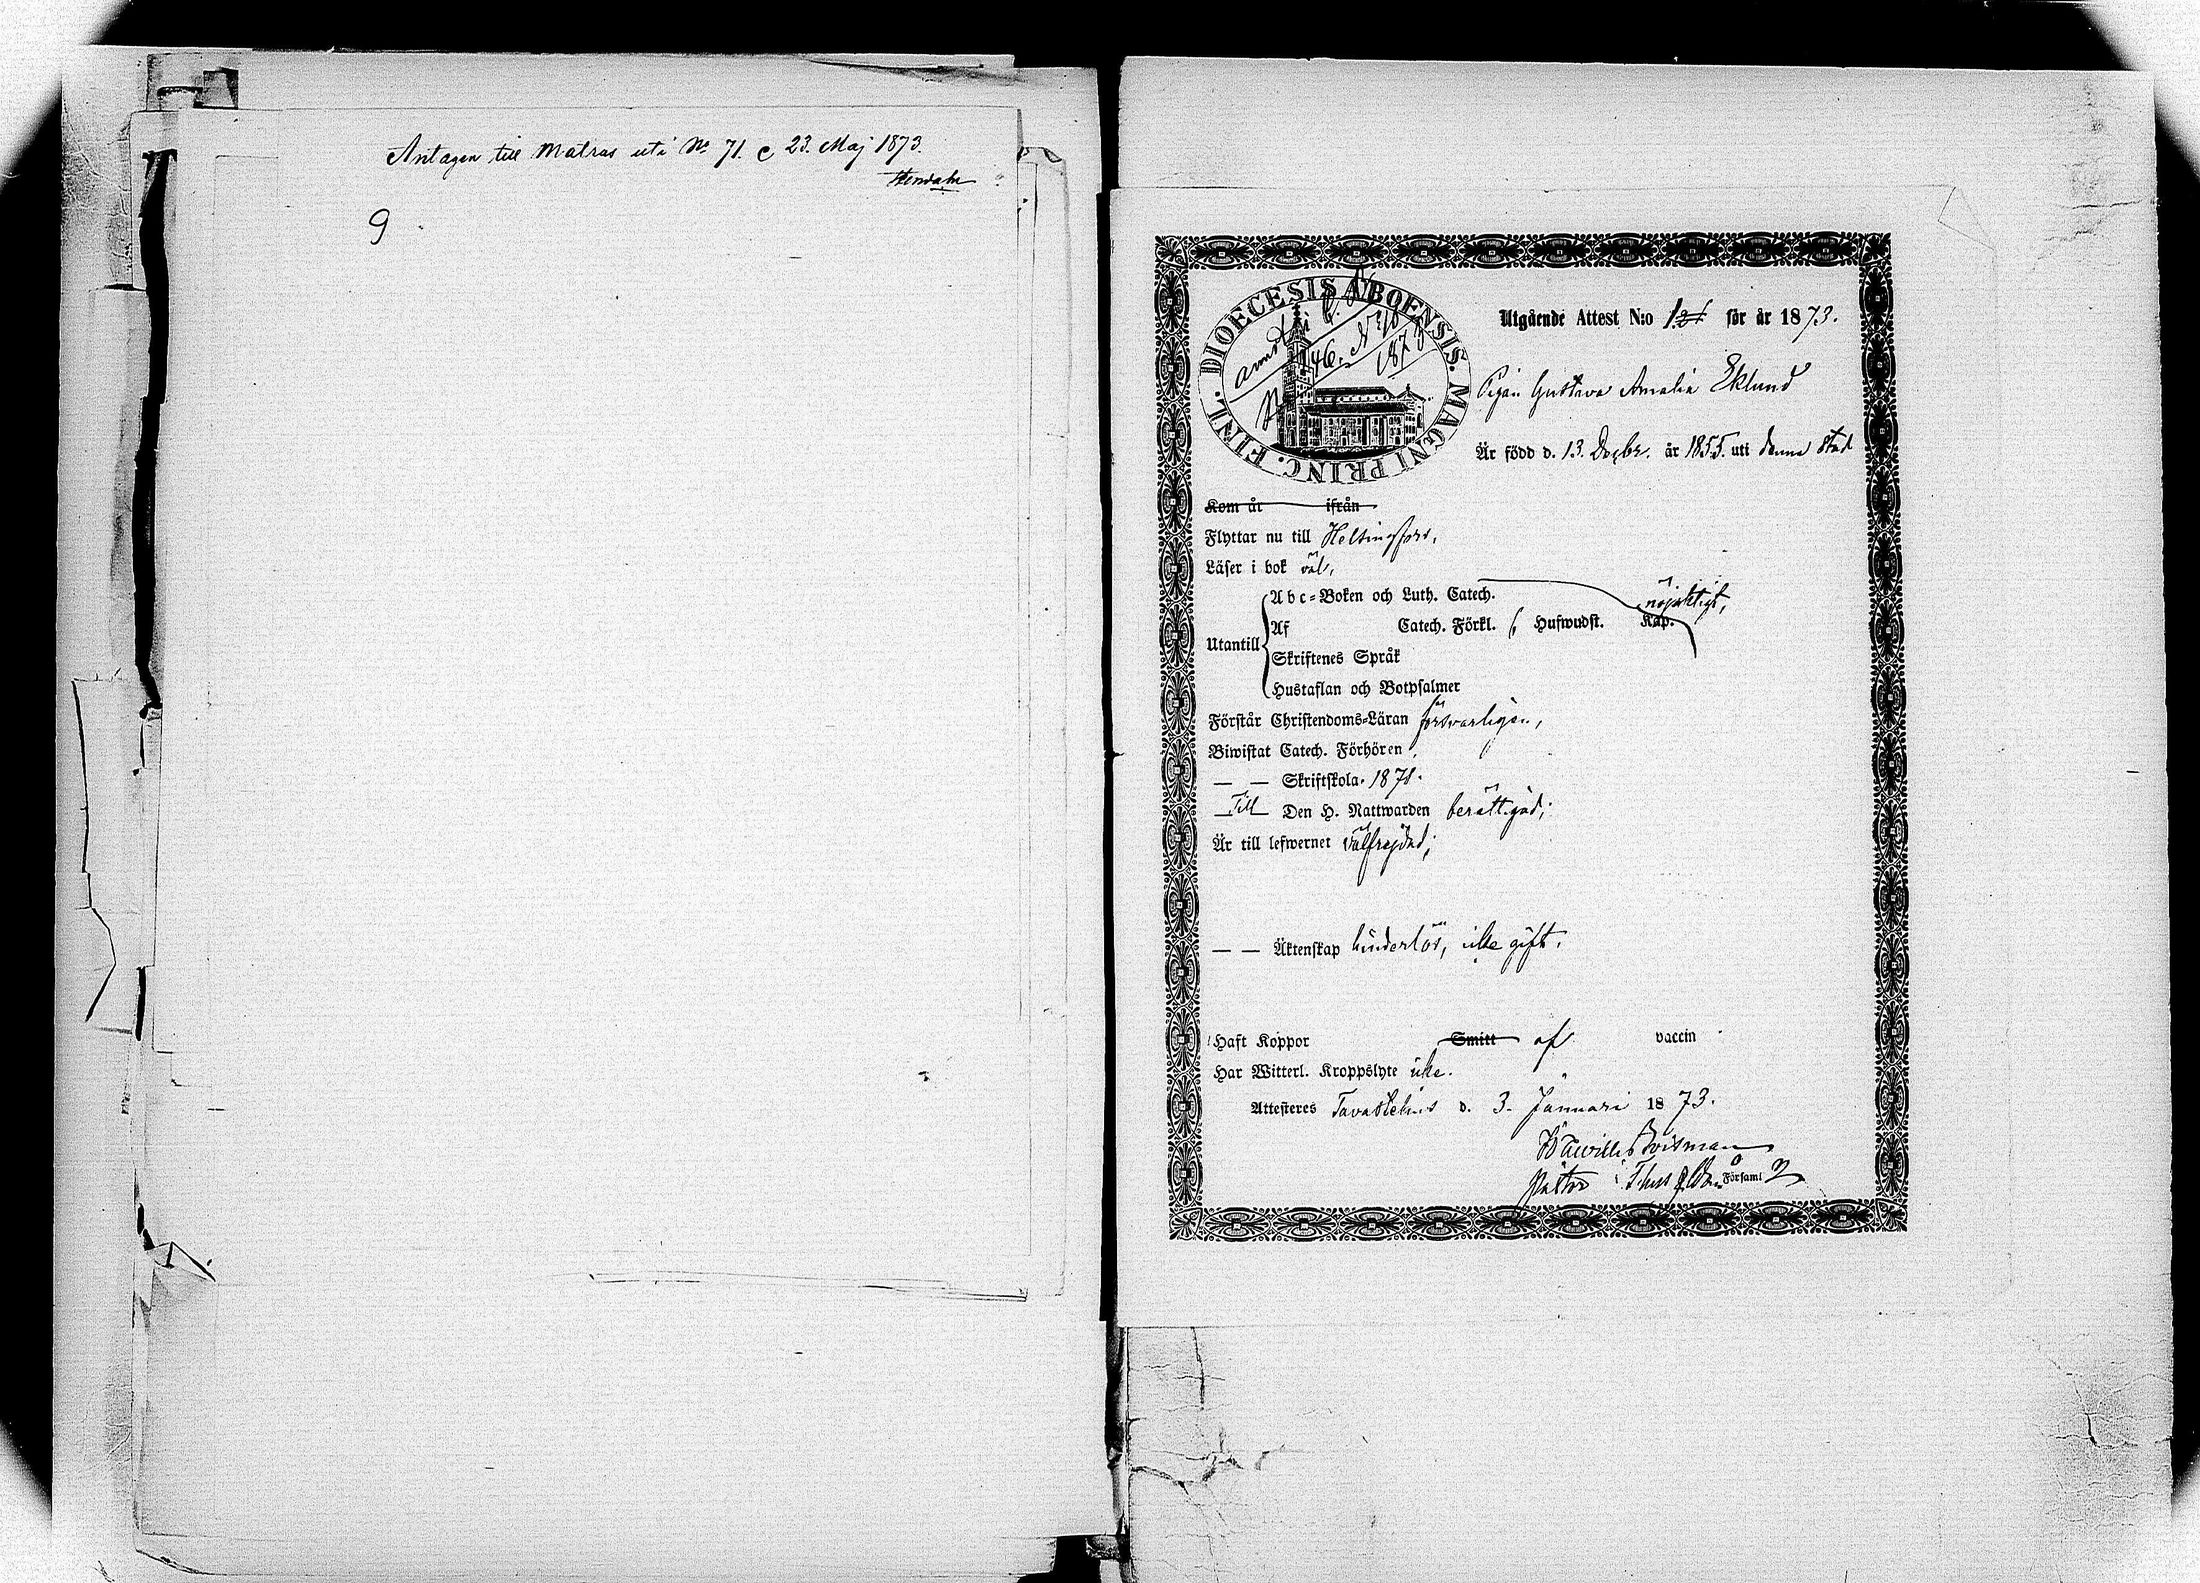 Antagen till Matros uti No 71. c 23. Maj 1873.
9
DIOECESIS ABOENSIS. MAGNI PRINC. FINL.
No 46. No 10
1873
Utgående Attest N:o för år 1873.
Pigan Gustava Amalia Eklund
Är född d. 13. Decbr. år 1855. uti denna stad
Kom år ifrån
Flyttar nu till Helsingfors,
Läser i bok väl,
Utantill
Abc-Boken och Luth. Catech. nöjaktigt,
Af Catech. Förkl. Hufwudst. Kap.
Skriftenes Språk
Hustaflan och Botpsalmer
Förstår Christendoms-Läran försvarligen,
Biwistat Catech. Förhören
— — Skriftskola 1871.
Till Den H. Nattwarden berättigad;
Är till lefwernet välfrejdad;
— — Äktenskap hinderlös, icke gift.
Haft Koppor Smitt af vaccin
Har Witterl. Kroppslyte icke.
Attesteres Tavastehus d. 3. Januari 1873.
Pastor i Församl